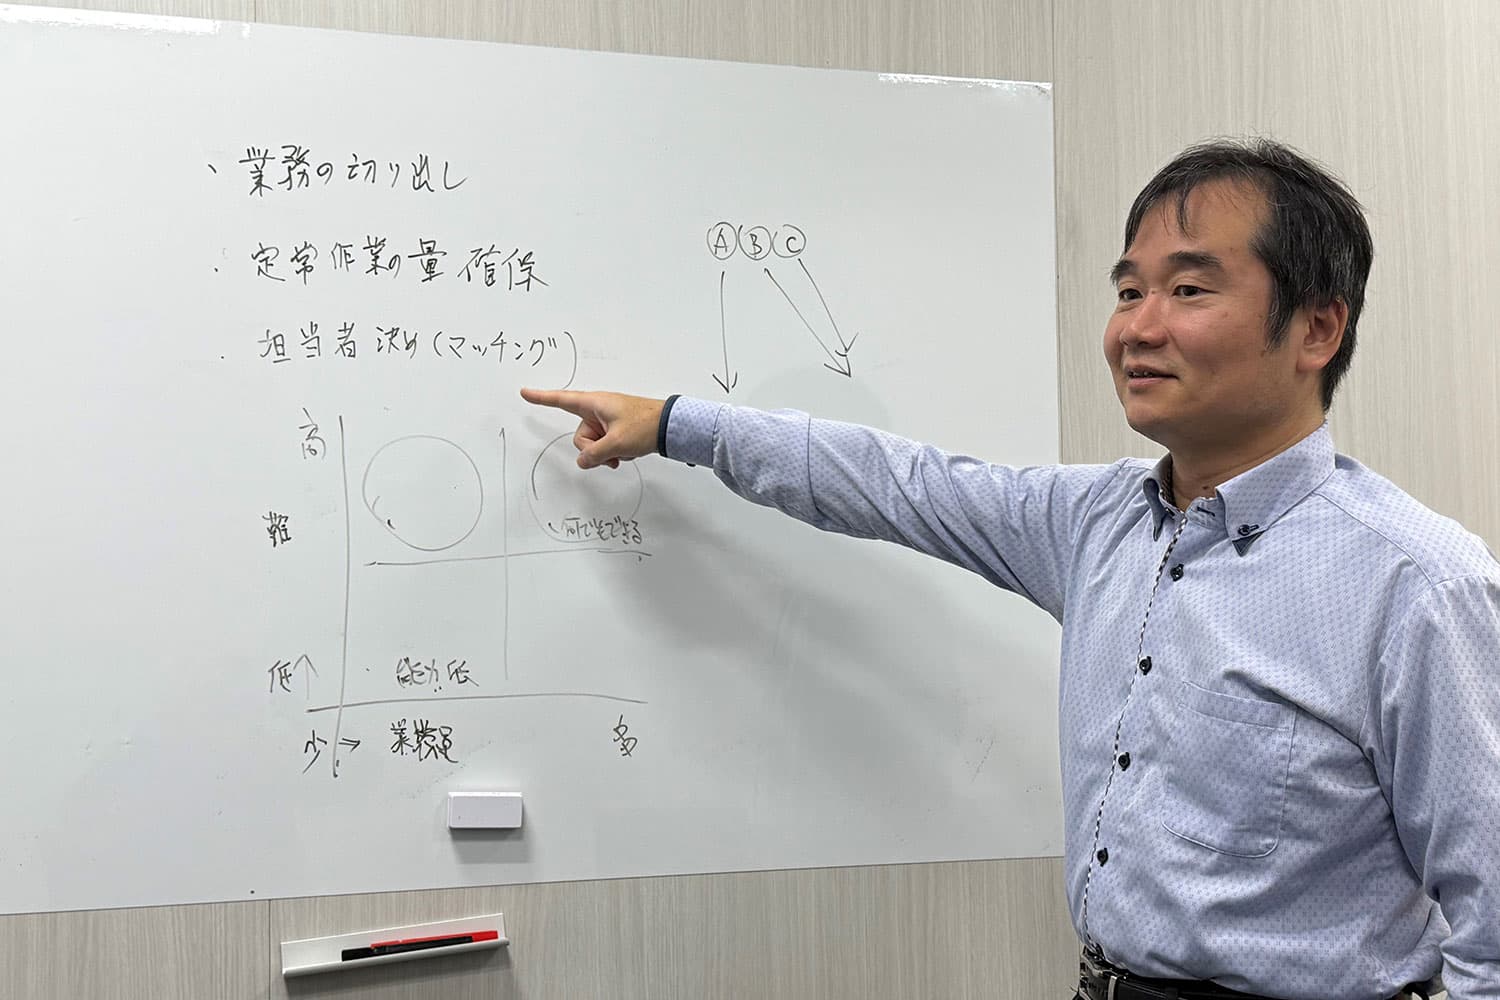 ・業務の切り出し
・定常作業の量確保
・担当者決め(マッチング)
Ⓐ Ⓑ Ⓒ
高
難
・何でもできる
低↑
・能力低
少→ 業務量 多